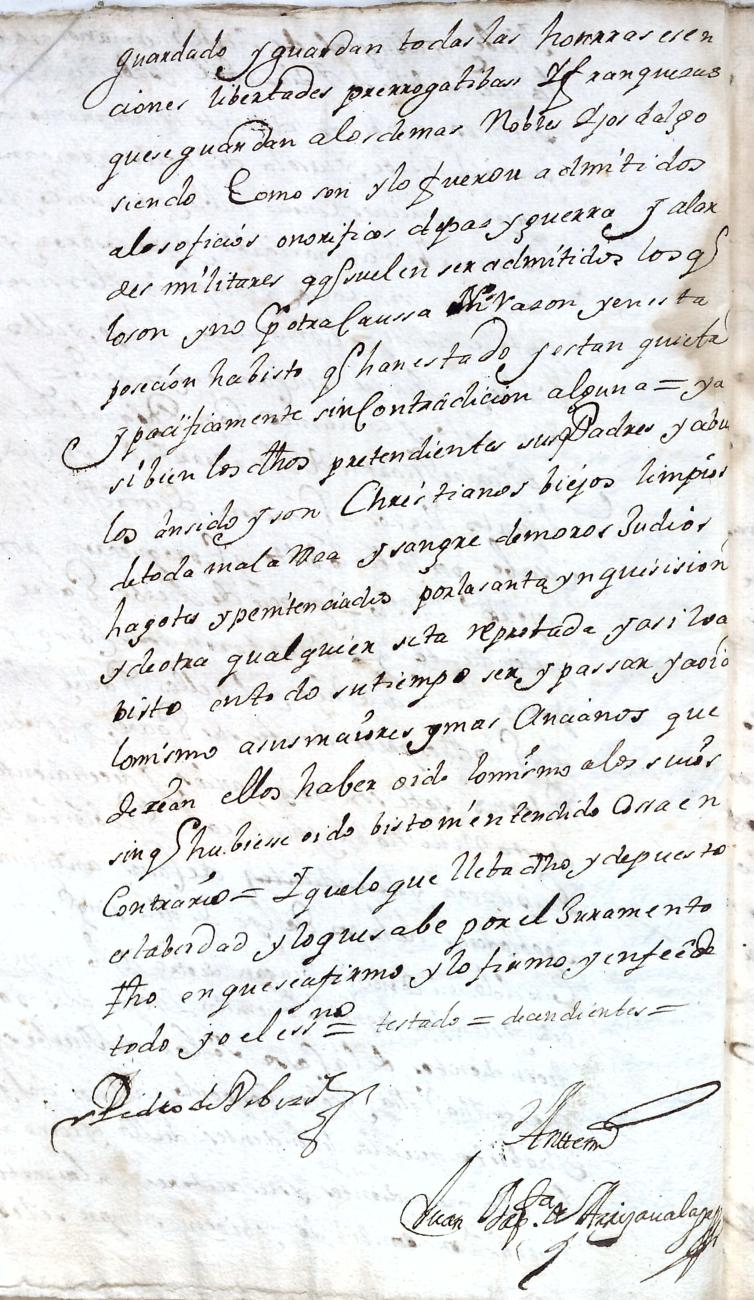 guardado y guardan todas las honrras esen
ciones libertades prerrogatibas y franquezas
que se guardan a los demas Nobles Yjosdalgo
siendo Como son y lo fueron admitidos
a los oficios onorificos de paz y guerra y alar
des militares q q suelen ser admitidos los q
lo son y no p otra Caussa ni Razon y en esta
posecion ha bisto q han estado y estan quieta
y pacificamente sin Contradicion alguna = y a
si bien los dhos pretendientes sus Padres y abu
los an sido y son Christianos biejos limpios
de toda mala Raza y sangre de moros Judios
hagotes y penitenciados por la santa ynquisision
y de otra qualquier seta reprobada y asi lo a
bisto en todo su tiempo ser y passar y a oido
lo mismo a sus maiores y mas Ancianos que
decian ellos haber oido lo mismo a los suios
sin q hubiesse oido bisto ni entendido Cossa en
Contrario = Y que lo que lleba dho y depuesto
es la berdad y lo que sabe por el Juramento
dho en que se afirmo y lo firmo y en fee de
todo yo el essno = testado = decendientes =
Pedro de
Ante mi
Juan Bapta de Arizavalaga